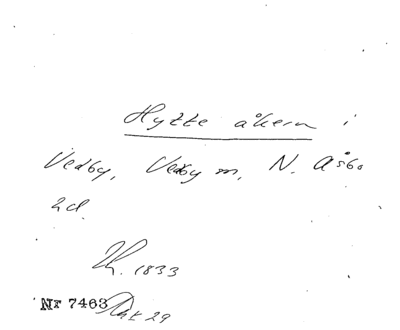 Hytte åkern i
Vedby, Vedby m, N. Åsbo
hd
Th. 1833
Nr 7463 Akt 29